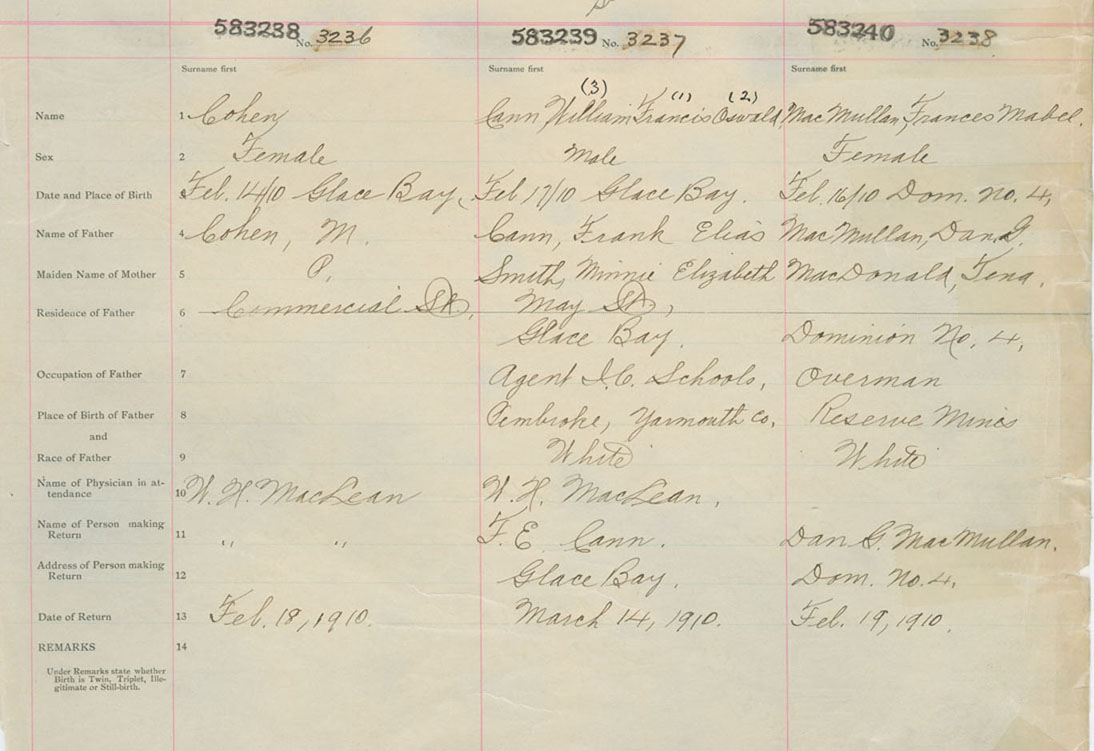 583238 No. 3236 583239 No. 3237 583240 No. 3238
Surname first Surname first Surname first
(3) (1) (2)
Name 1 Cohen Cann, William Francis Oswald, MacMullan, Frances Mabel.
Sex 2 Female Male Female
Date and Place of Birth 3 Feb. 14/10 Glace Bay, Feb 17/10 Glace Bay. Feb. 16/10 Dom. No. 4,
Name of Father 4 Cohen, M. Cann, Frank Elias MacMullan, Dan. G.
Maiden Name of Mother 5 P. Smith, Minnie Elizabeth MacDonald, Tena.
Residence of Father 6 Commercial St., May St.,
Glace Bay. Dominion No. 4,
Occupation of Father 7 Agent I.C. Schools, Overman
Place of Birth of Father 8 Pembroke, Yarmouth Co. Reserve Mines
and
Race of Father 9 White White
Name of Physician in at-
tendance 10 W. H. MacLean W. H. MacLean,
Name of Person making
Return 11 " " F. E. Cann. Dan G. MacMullan.
Address of Person making
Return 12 Glace Bay. Dom. No. 4.
Date of Return 13 Feb. 18, 1910. March 14, 1910. Feb. 19, 1910.
REMARKS 14
Under Remarks state whether
Birth is Twin, Triplet, Ille-
gitimate or Still-birth.